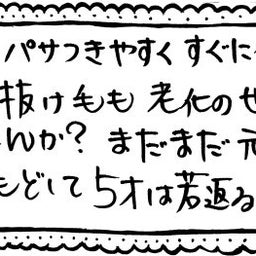 パサつきやすくすぐに
抜け毛も 老化のせ
んか？ まだまだ元
もどして 5才は若返る